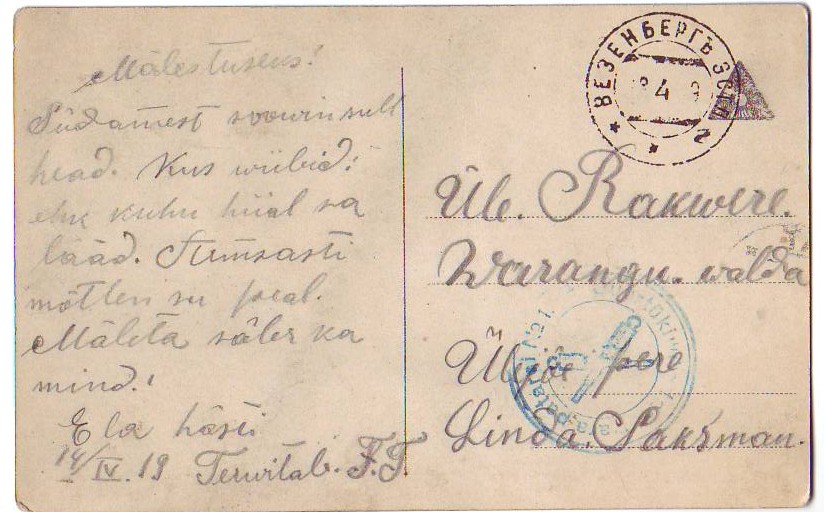 Mälestuseks!
Südamest soowin sull
head. Kus wiibid:
ehk kuhu iial sa
lääd. Armsasti
mõtlen su peal.
Mäleta sõber ka
mind!
Ela hästi
14/IV.19 Terwitab. F.T
ВЕЗЕНБЕРГЪ ЭСТЛ
4
2
Üle. Rakwere.
Warangu. walda
Üljä pere
Linda. Saksman.